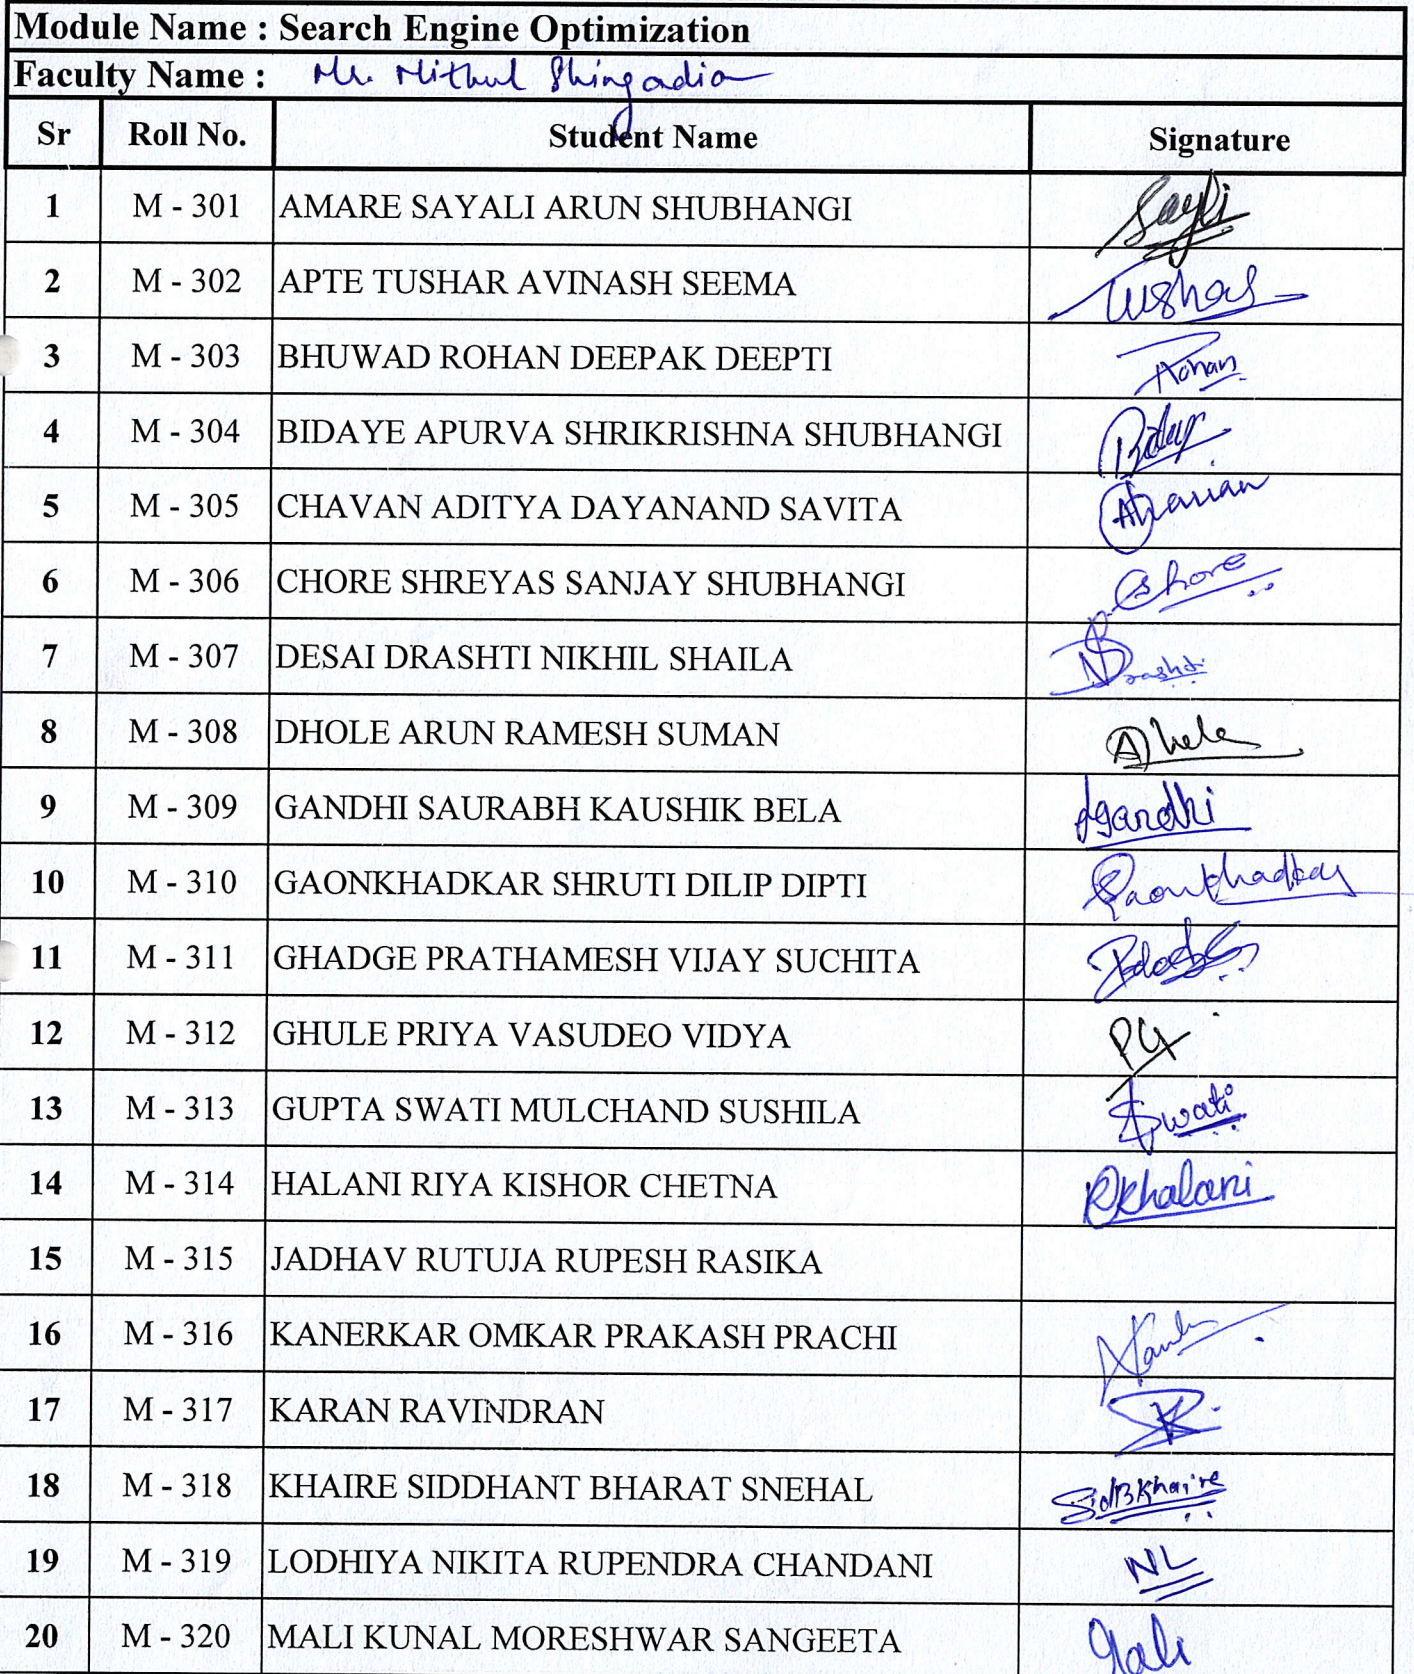 Module Name : Search Engine Optimization
Faculty Name : Mr. Mithul Shingadia
Sr Roll No. Student Name Signature
1 M - 301 AMARE SAYALI ARUN SHUBHANGI Sayli
2 M - 302 APTE TUSHAR AVINASH SEEMA Tushar
3 M - 303 BHUWAD ROHAN DEEPAK DEEPTI Rohan
4 M - 304 BIDAYE APURVA SHRIKRISHNA SHUBHANGI
5 M - 305 CHAVAN ADITYA DAYANAND SAVITA
6 M - 306 CHORE SHREYAS SANJAY SHUBHANGI
7 M - 307 DESAI DRASHTI NIKHIL SHAILA Drashti
8 M - 308 DHOLE ARUN RAMESH SUMAN
9 M - 309 GANDHI SAURABH KAUSHIK BELA Sgandhi
10 M - 310 GAONKHADKAR SHRUTI DILIP DIPTI Gaonkhadkar
11 M - 311 GHADGE PRATHAMESH VIJAY SUCHITA
12 M - 312 GHULE PRIYA VASUDEO VIDYA PG
13 M - 313 GUPTA SWATI MULCHAND SUSHILA Swati
14 M - 314 HALANI RIYA KISHOR CHETNA RKhalani
15 M - 315 JADHAV RUTUJA RUPESH RASIKA
16 M - 316 KANERKAR OMKAR PRAKASH PRACHI
17 M - 317 KARAN RAVINDRAN
18 M - 318 KHAIRE SIDDHANT BHARAT SNEHAL SidBKhaire
19 M - 319 LODHIYA NIKITA RUPENDRA CHANDANI NL
20 M - 320 MALI KUNAL MORESHWAR SANGEETA